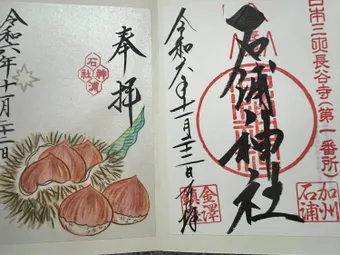 日本三所長谷寺(第一番所)
石浦神社
加州
石浦
令和六年十一月二十二日参拝
金澤
鎮
奉拝
石浦
神社
令和六年十一月二十二日